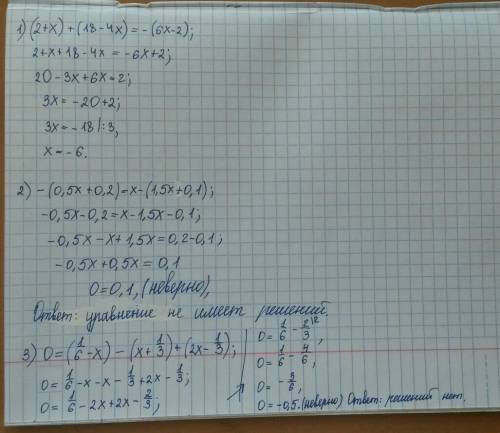 1) (2+x)+(18-4x)=-(6x-2);
2+x+18-4x=-6x+2;
20-3x+6x=2;
3x=-20+2;
3x=-18|:3,
x=-6.
2) -(0,5x+0,2)=x-(1,5x+0,1);
-0,5x-0,2=x-1,5x-0,1;
-0,5x-x+1,5x=0,2-0,1;
-0,5x+0,5x=0,1
0=0,1, (неверно),
Ответ: уравнение не имеет решений.
3) 0=(1/6-x)-(x+1/3)+(2x-1/3);
0=1/6-x-x-1/3+2x-1/3;
0=1/6-2x+2x-2/3;
0=1/6-2/3|2
0=1/6-4/6,
0=-3/6,
0=-0,5.(неверно) Ответ: решений нет.